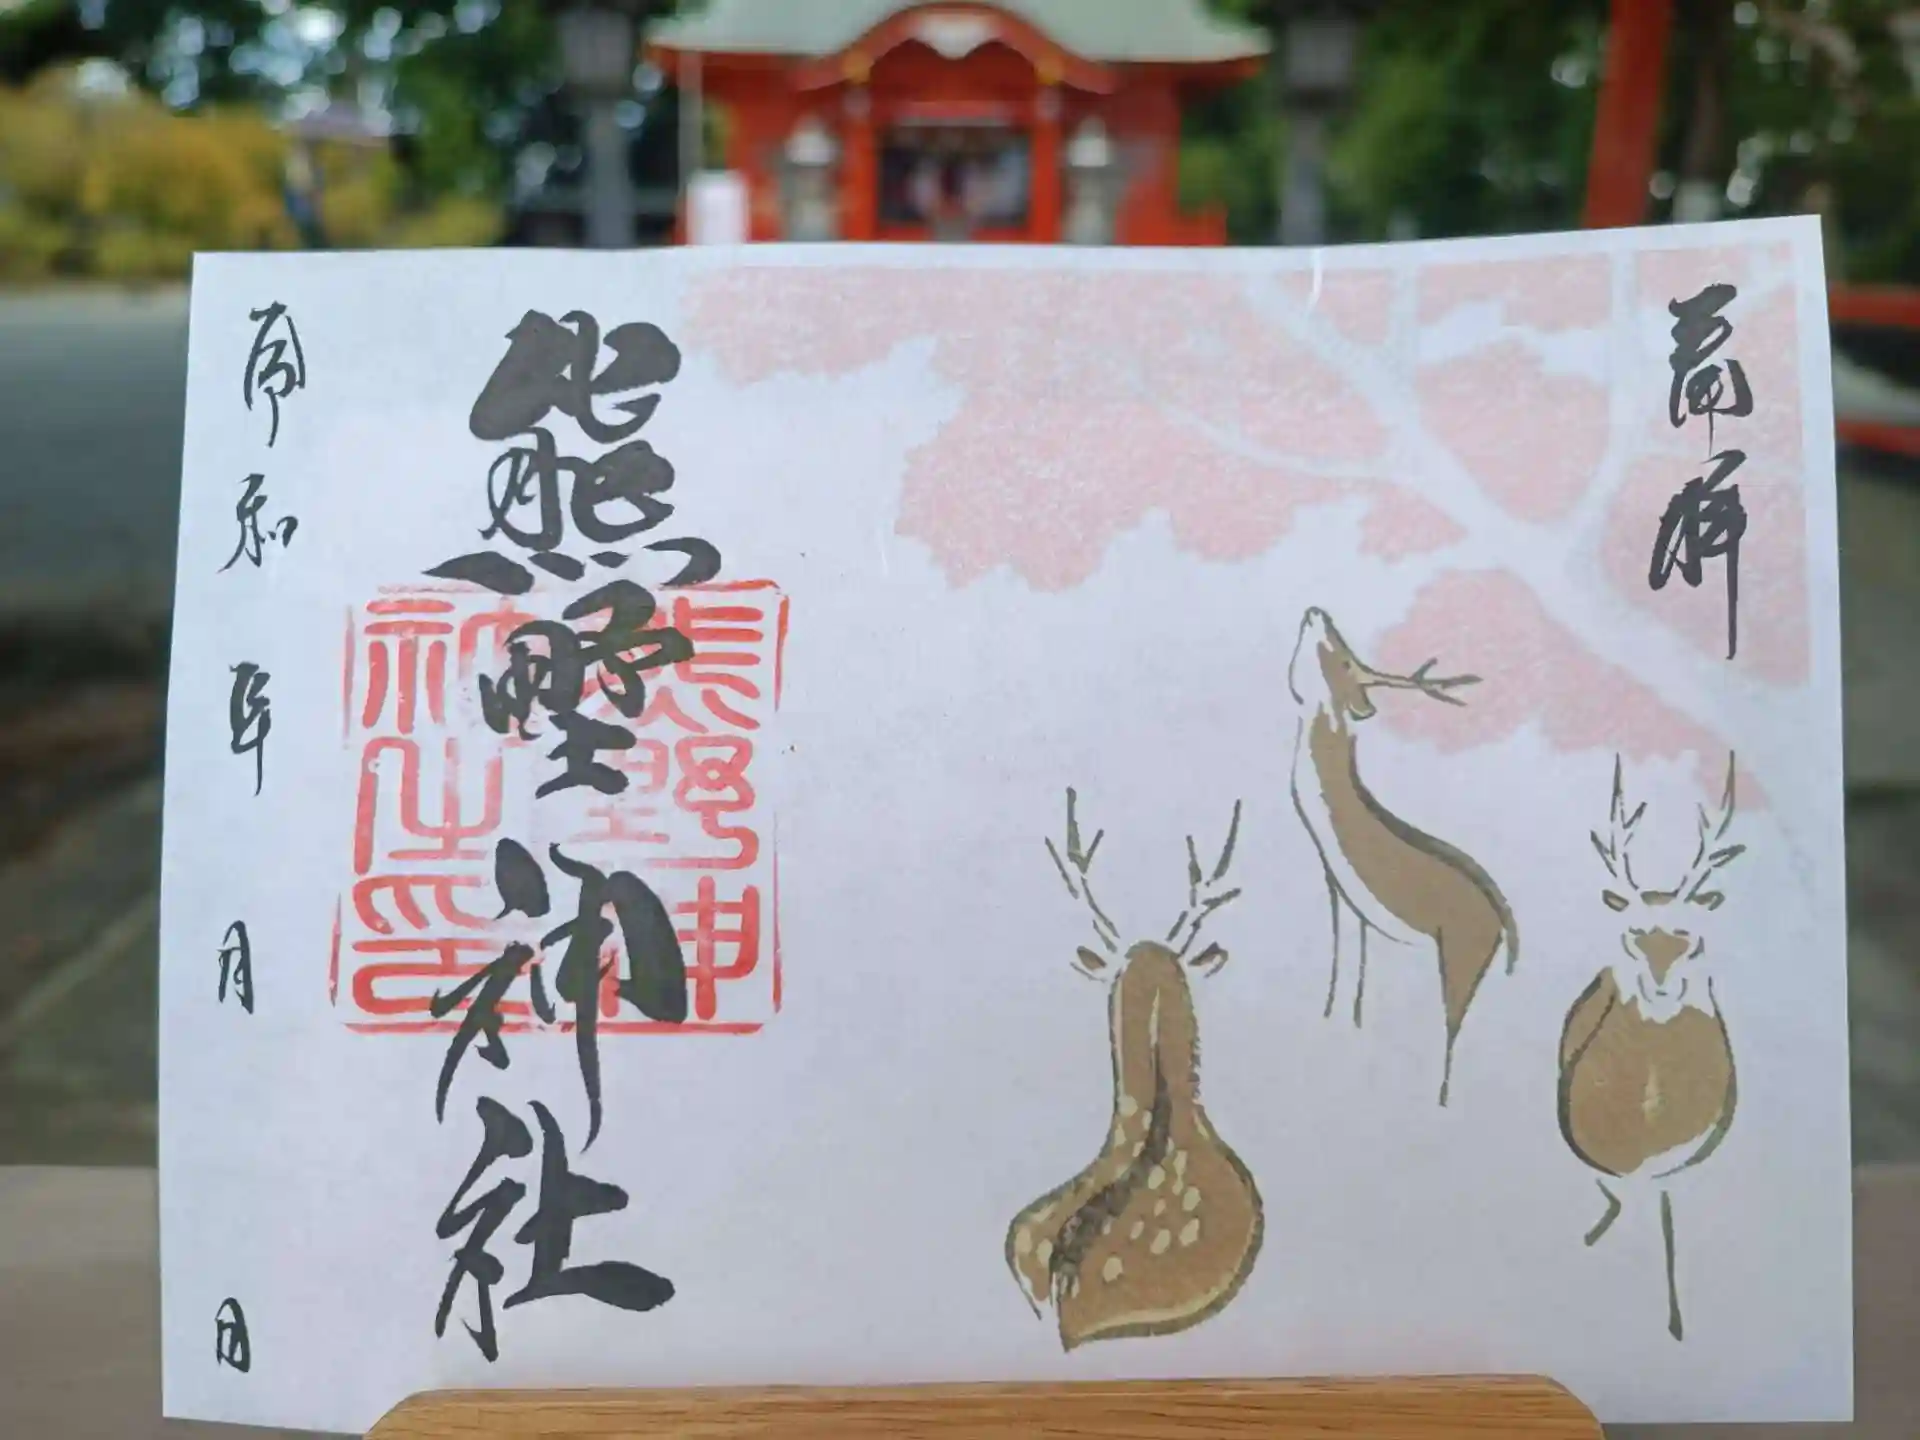 奉拝
熊野神社
熊野神社之印
令和 年 月 日